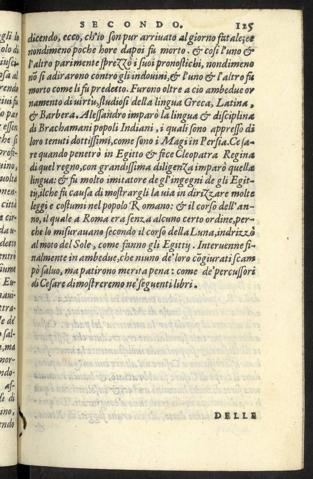 SECONDO. 125
dicendo, ecco, ch'io son pur arrivato al giorno fatale: &
nondimeno poche hore dapoi fu morto. & cosi l'uno &
l'altro parimente sprezzò i suoi pronostichi, nondimeno
nō si adirarono contro gli indouini, & l'uno & l'altro fu
morto come li fu predetto. Furono oltre a cio ambedue or
namento di uirtu, studiosi della lingua Greca, Latina,
& Barbera. Alessandro imparò la lingua & disciplina
di Brachamani popoli Indiani, i quali sono appresso di
loro tenuti dottissimi, come sono i Magi in Persia. Cesa-
re quando penetrò in Egitto & fice Cleopatra Regina
di quel regno, con grandissima diligenza imparò quella
lingua: & fu molto imitatore de gl'ingegni de gli Egit-
tij, il che fu causa di mostrargli la uia in dirizzare molte
leggi e costumi nel popolo Romano: & il corso dell'an-
no, il quale a Roma era senza alcuno certo ordine, per-
che lo misurauano secondo il corso della Luna, indrizzò
al moto del Sole, come fanno gli Egittij. Interuenne fi-
nalmente in ambedue, che niuno de' loro cōgiurati scam
pò saluo, ma patirono merita pena: come de' percussori
di Cesare dimostreremo ne' seguenti libri.
DELLE